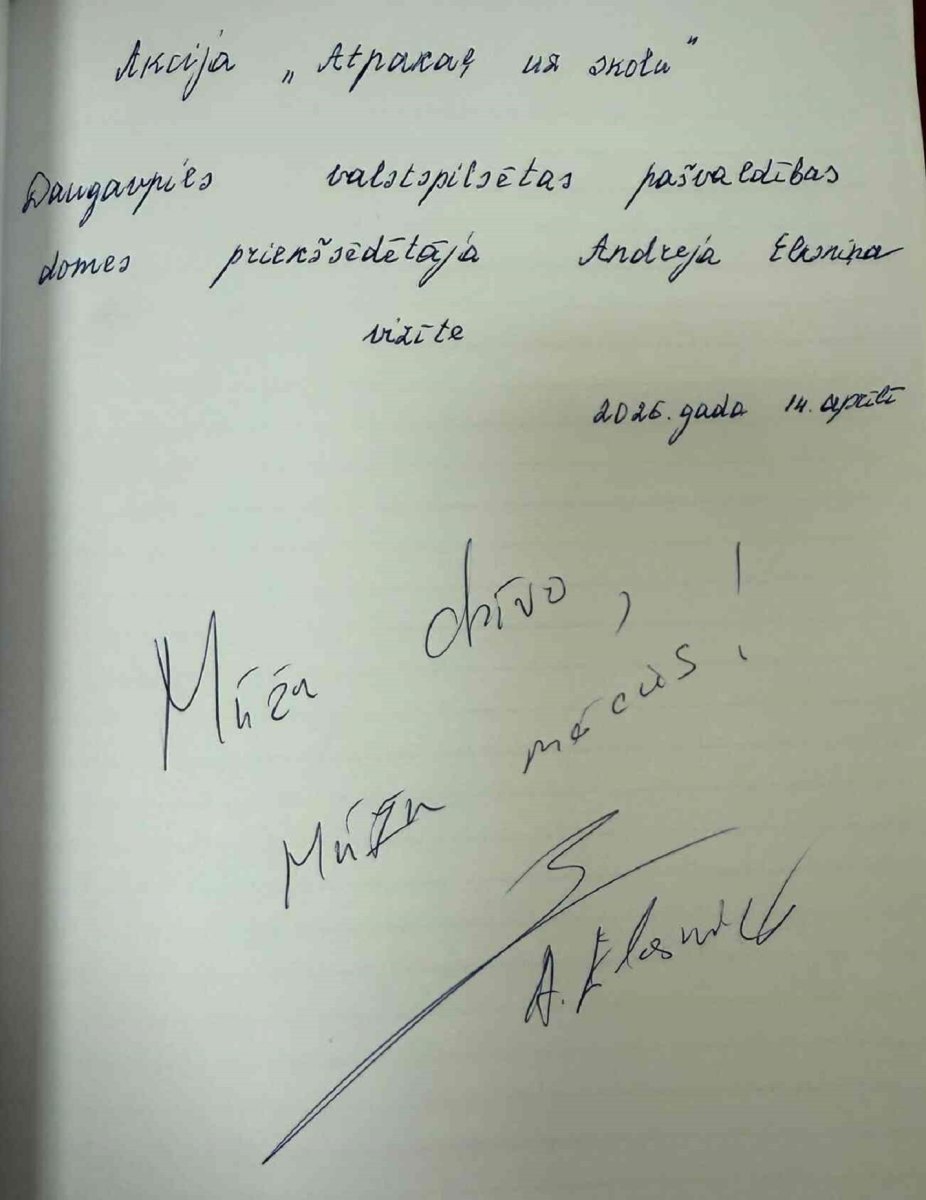 Akcija „Atpakaļ uz skolu”
Daugavpils valstspilsētas pašvaldības
domes priekšsēdētāja Andreja Elksniņa
vizīte
2026. gada 14. aprīlī
Mūžu dzīvo, !
Mūžu mācies!
A. Elksniņš